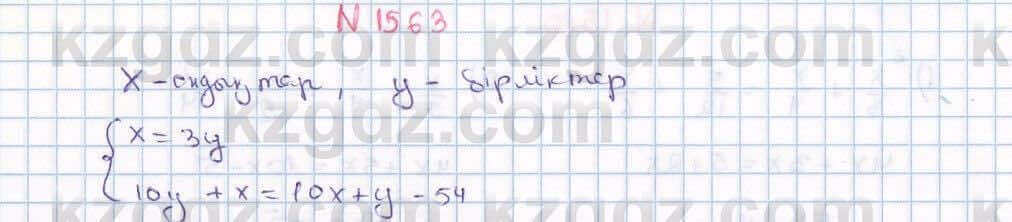 N 1563
x - ондықтар, y - бірліктер
x = 3y
10y + x = 10x + y - 54
kzgdz.com kzgdz.com
kzgdz.com